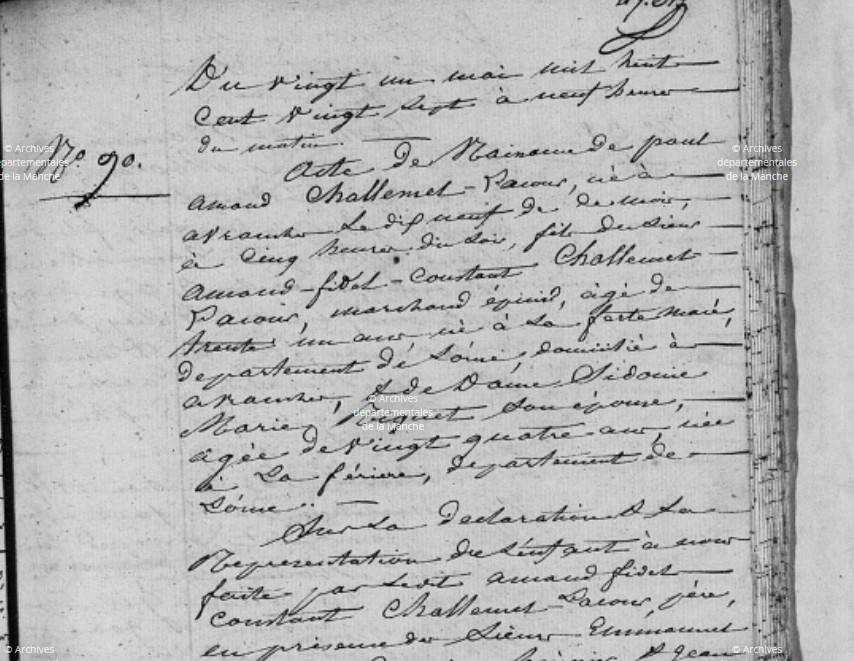 Du vingt un mai mil huit
Cent vingt sept à neuf heures
du matin.
N° 90.
Acte de Naissance de paul
amand Challemel-Lacour, né à
avranches Le dix neuf de ce mois,
à Cinq heures du soir, fils du Sieur
amand-fidel-constant Challemel
Lacour, marchand épicié, âgé de
trente un ans né à La ferté macé,
département de L'orne, domicilié à
avranches, & de Dame Sidonie
Marie son épouse,
agée de vingt quatre ans, née
à La férière, département de
L'orne.
Sur La declaration & La
Représentation de L'enfant à nous
faite par Ledit amand fidel
constant Challemel-Lacour, père,
en présence des Sieurs Emmanuel
& Jean
© Archives
départementales
de la Manche
© Archives
départementales
de la Manche
© Archives
départementales
de la Manche
© Archives
© Archives
© Archives